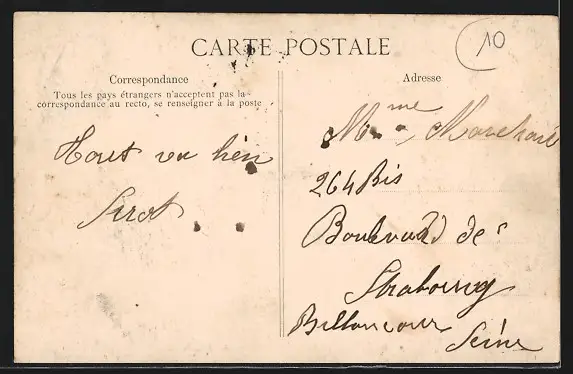 CARTE POSTALE
10
Correspondance
Tous les pays étrangers n'acceptent pas la
correspondance au recto, se renseigner à la poste
Tout va bien
Adresse
Mme Marchand
264 Bis
Boulevard de
Strabourg
Billancour
Seine